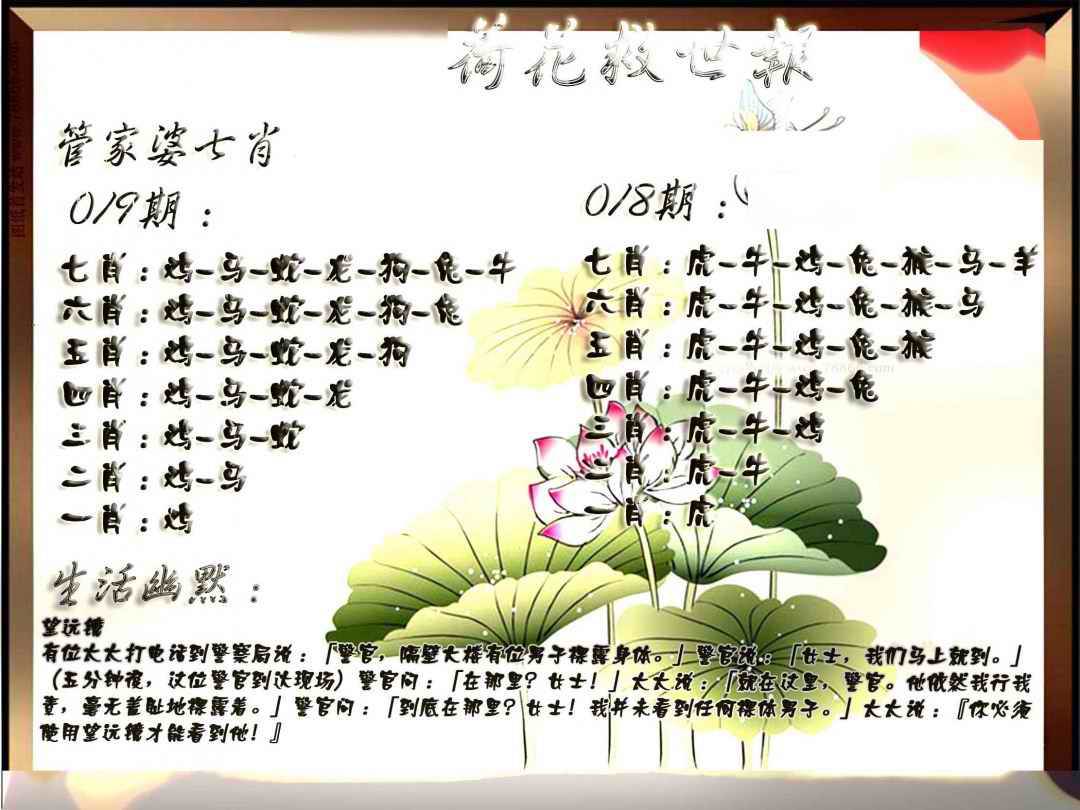 荷花救世報
管家婆七肖
019期：
七肖：鸡-马-蛇-龙-狗-兔-牛
六肖：鸡-马-蛇-龙-狗-兔
五肖：鸡-马-蛇-龙-狗
四肖：鸡-马-蛇-龙
三肖：鸡-马-蛇
二肖：鸡-马
一肖：鸡
018期：
七肖：虎-牛-鸡-兔-猴-马-羊
六肖：虎-牛-鸡-兔-猴-马
五肖：虎-牛-鸡-兔-猴
四肖：虎-牛-鸡-兔
三肖：虎-牛-鸡
二肖：虎-牛
一肖：虎
生活幽默：
望远镜
有位太太打电话到警察局说：「警官，隔壁大楼有位男子裸露身体。」警官说：「女士，我们马上就到。」
（五分钟後，这位警官到达现场）警官问：「在那里？女士！」太太说：「就在这里，警官。他依然我行我
素，毫无羞耻地裸露着。」警官问：「到底在那里？女士！我并未看到任何裸体男子。」太太说：『你必须
使用望远镜才能看到他！』